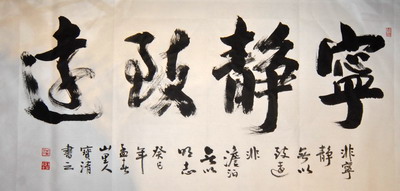 寧静致遠
非寧
静
無以
致遠
非
澹泊
無以
明志
癸巳
年
孟春
山里人
寶清
書之